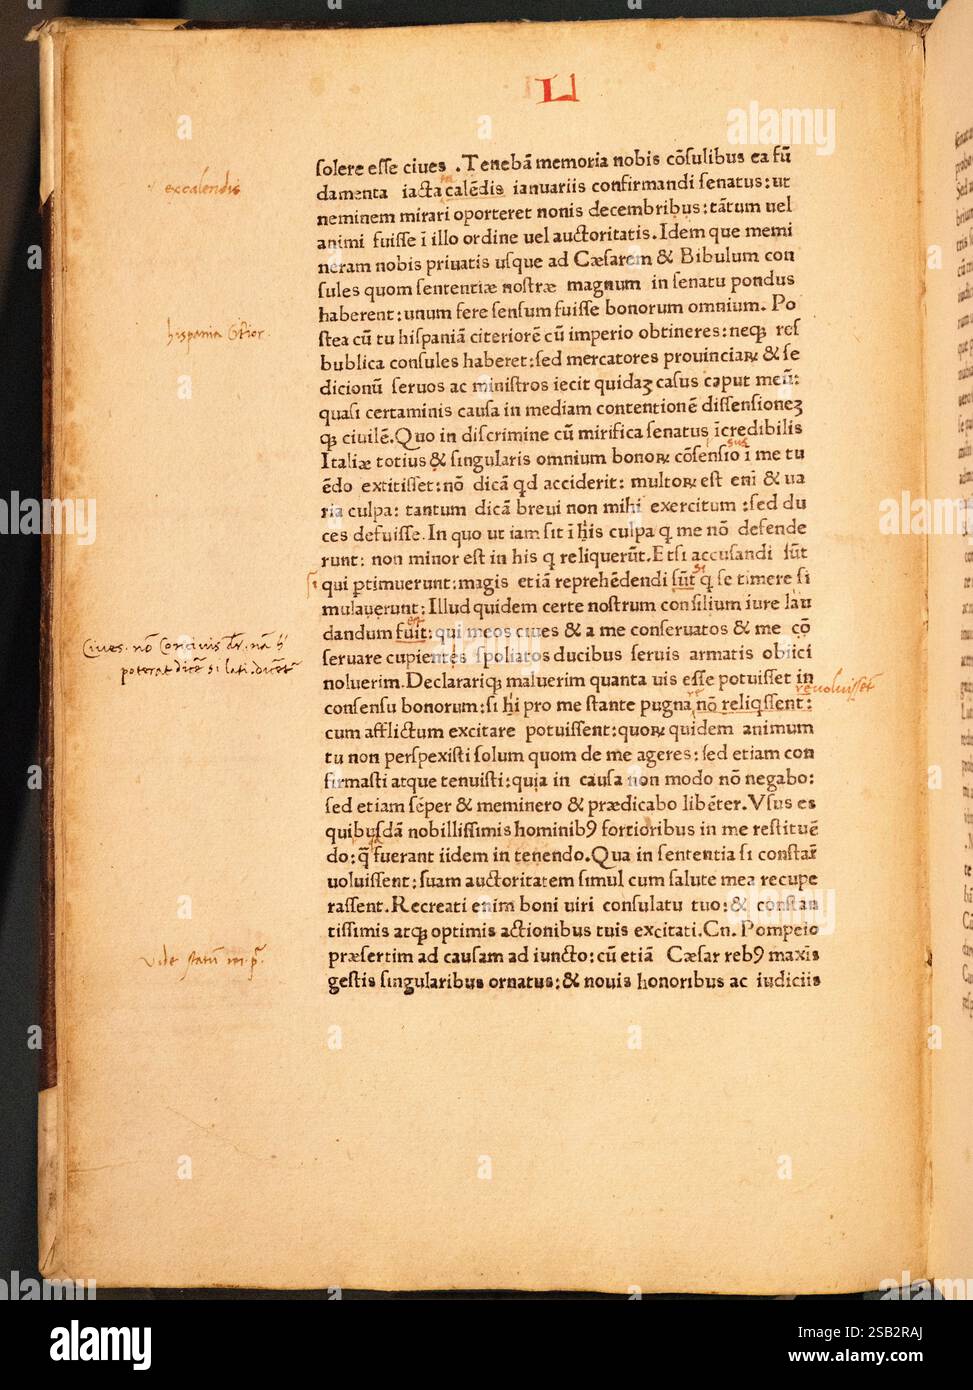 LI
solere esse ciues .Tenebã memoria nobis cõsulibus ea fũ
damenta iacta calẽdis ianuariis confirmandi senatus: ut
neminem mirari oporteret nonis decembribus: tãtum uel
animi fuisse ĩ illo ordine uel auctoritatis. Idem que memi
neram nobis priuatis usque ad Cæsarem & Bibulum con
sules quom sententiæ nostræ magnum in senatu pondus
haberent: unum fere sensum fuisse bonorum omnium. Po
stea cũ tu hispaniã citeriorẽ cũ imperio obtineres: neqꝫ res
bublica consules haberet: sed mercatores prouinciaꝝ & se
dicionũ seruos ac ministros iecit quidaꝫ casus caput meũ:
quasi certaminis causa in mediam contentionẽ dissensioneꝫ
qꝫ ciuilẽ. Quo in discrimine cũ mirifica senatus ĩcredibilis
Italiæ totius & singularis omnium bonoꝝ cõsensio ĩ me tu
ẽdo extitisset: nõ dicã qd acciderit: multoꝝ est eni & ua
ria culpa: tantum dicã breui non mihi exercitum :sed du
ces defuisse. In quo ut iam sit ĩ his culpa q me nõ defende
runt: non minor est in his q reliquerũt. Etsi accusandi sũt
qui ꝑtimuerunt: magis etiã reprehẽdendi sũt q se timere si
mulauerunt: Illud quidem certe nostrum consilium iure lau
dandum fuit: qui meos ciues & a me conseruatos & me cõ
seruare cupientes spoliatos ducibus seruis armatis obiici
noluerim. Declarariqꝫ maluerim quanta uis esse potuisset in
consensu bonorum: si hi pro me stante pugna nõ reliqssent:
cum afflictum excitare potuissent: quoꝝ quidem animum
tu non perspexisti solum quom de me ageres: sed etiam con
firmasti atque tenuisti: quia in causa non modo nõ negabo:
sed etiam sẽper & meminero & prædicabo libẽter. Vsus es
quibusdã nobilissimis hominibꝰ fortioribus in me restituẽ
do: q̃ fuerant iidem in tenendo. Qua in sententia si constar̃
uoluissent: suam auctoritatem simul cum salute mea recupe
rassent. Recreati enim boni uiri consulatu tuo: & constan
tissimis atqꝫ optimis actionibus tuis excitati. Cn. Pompeio
præsertim ad causam ad iuncto: cũ etiã Cæsar rebꝰ maxis
gestis singularibus ornatus: & nouis honoribus ac iudiciis
excalendis
hispania Citior.
Ciues. nõ Conciuis
si
sus
est
revoluisset
alamy
Image ID: 2SB2RAJ
www.alamy.com